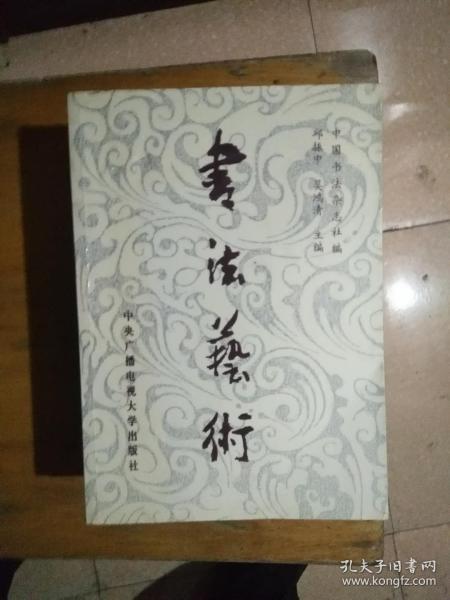 中国书法杂志社编
邱振中 吴鸿清 主编
書法藝術
中央广播电视大学出版社
孔夫子旧书网
www.kongfz.com